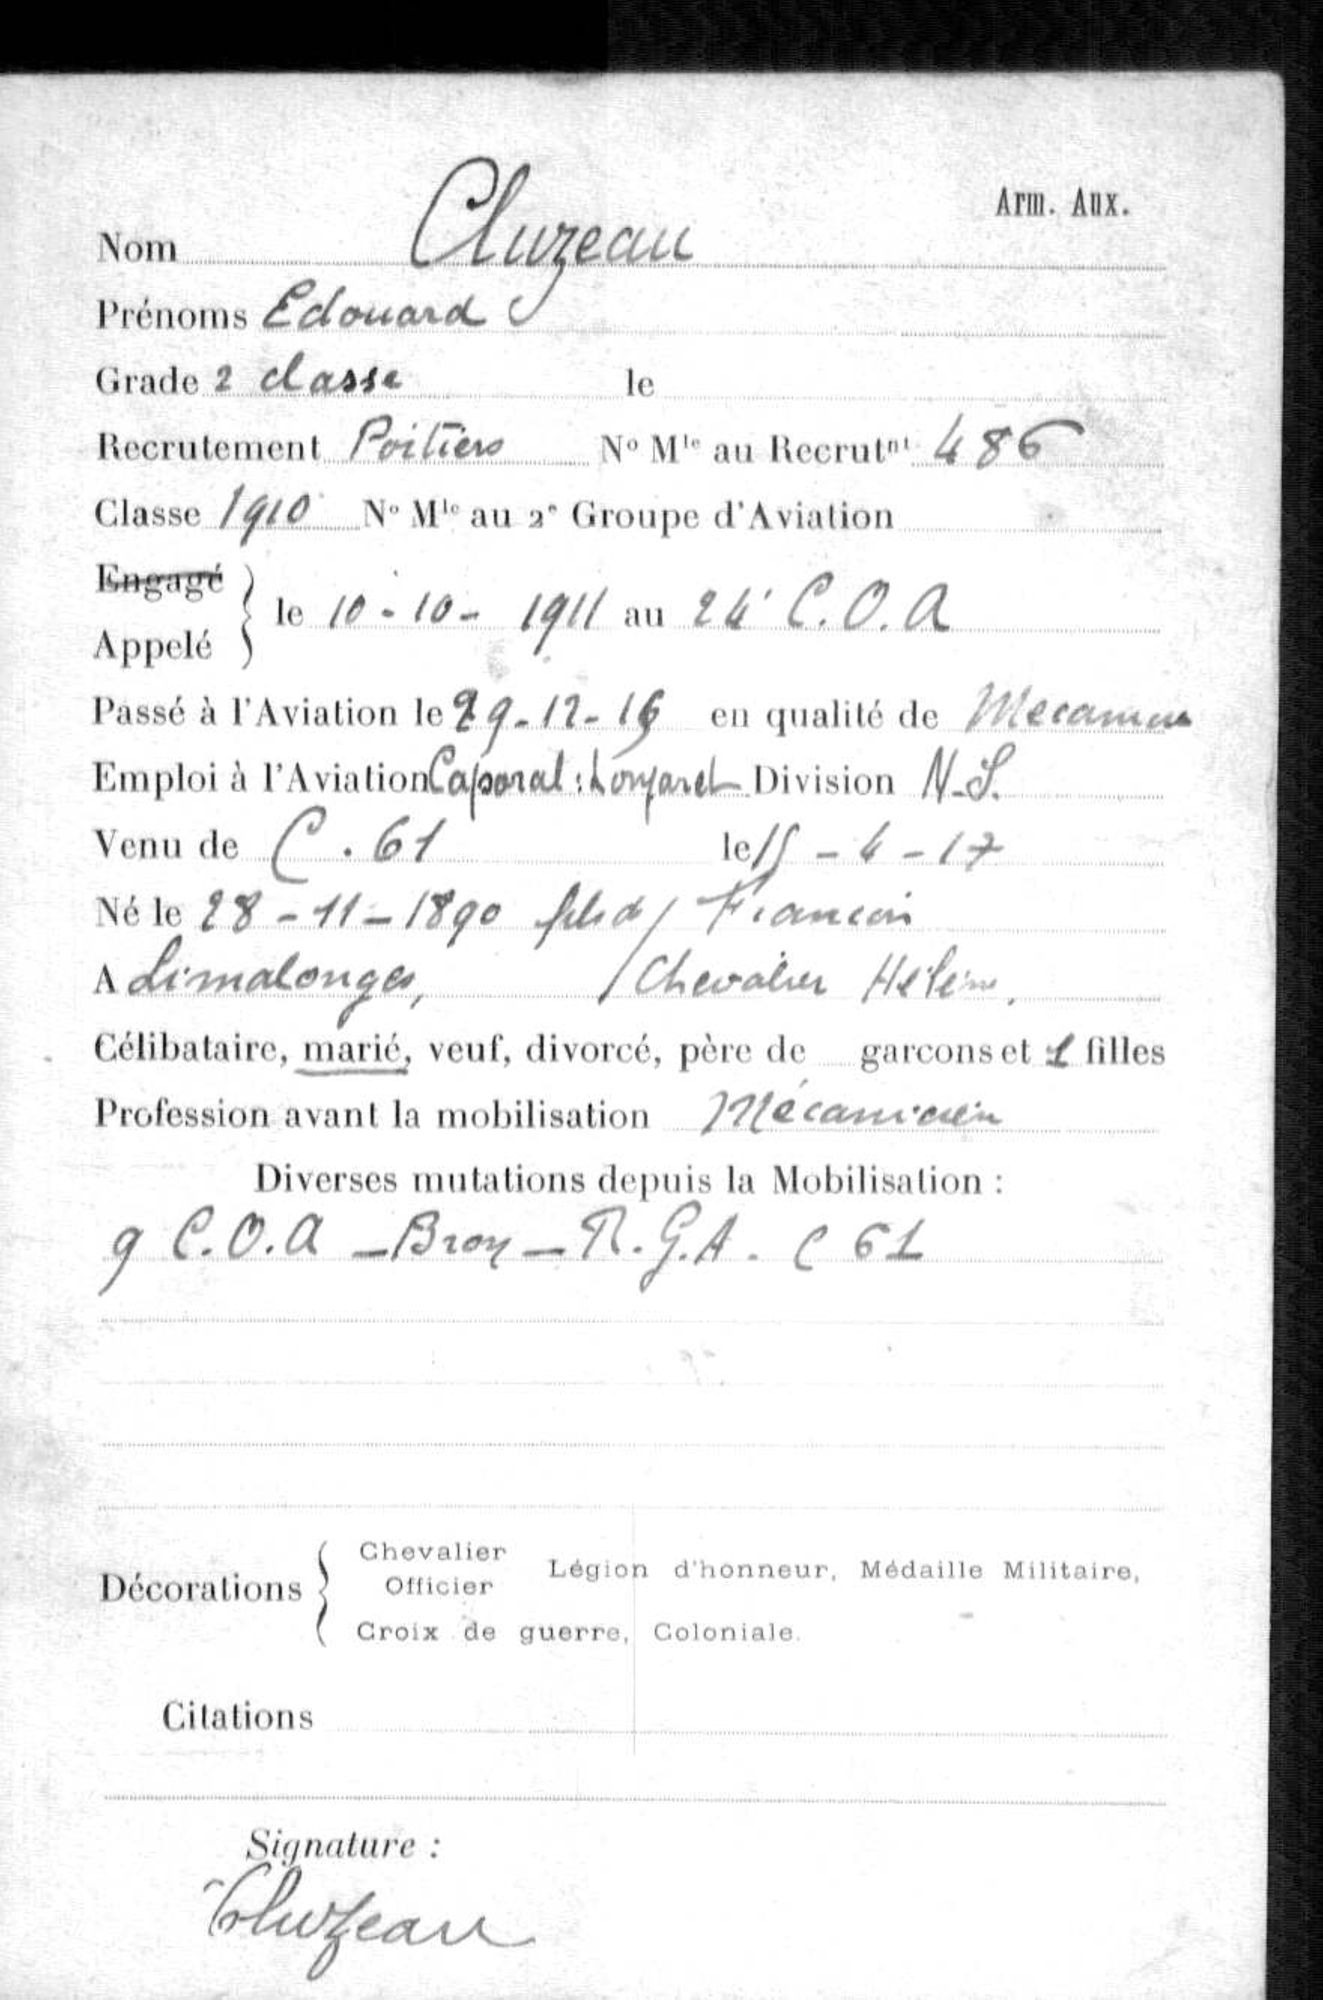 Arm. Aux.
Nom Cluzeau
Prénoms Edouard
Grade 2 classe le
Recrutement Poitiers N° Mle au Recrutnt 486
Classe 1910 N° Mle au 2e Groupe d'Aviation
Engagé
le 10-10-1911 au 24 C.O.A
Appelé
Passé à l'Aviation le 29-12-16 en qualité de
Emploi à l'Aviation Caporal: Division N.S.
Venu de C. 61 le 15-4-17
Né le 28-11-1890 fils d Francois
A Limalonges, Chevalier Hélène,
Célibataire, marié, veuf, divorcé, père de garcons et 1 filles
Profession avant la mobilisation Mécanicien
Diverses mutations depuis la Mobilisation :
9 C.O.A - Bron - R.G.A. C 61
Décorations
Chevalier
Officier
Légion d'honneur, Médaille Militaire,
Croix de guerre, Coloniale.
Citations
Signature :
Cluzeau